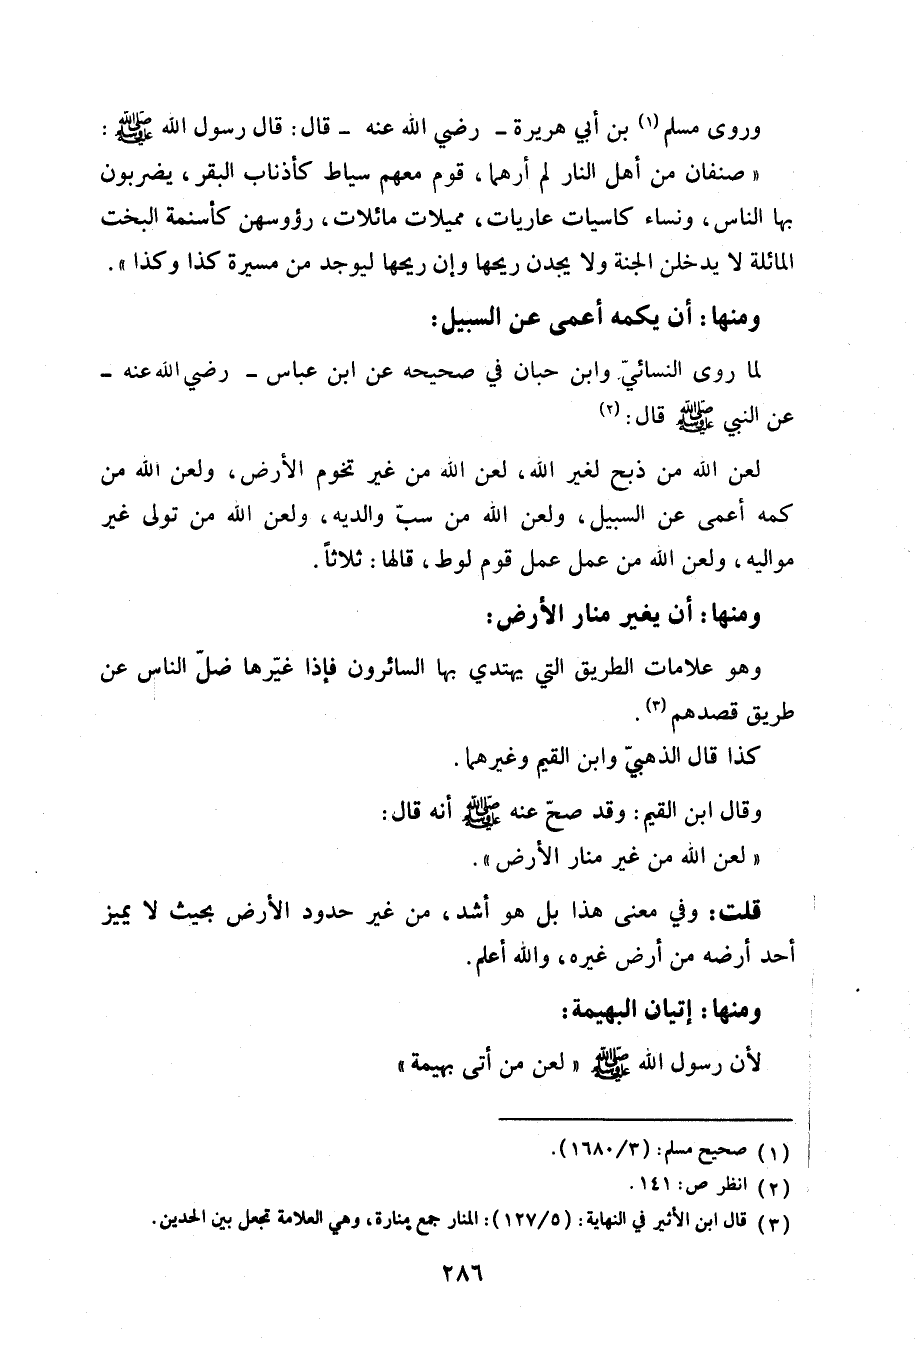 وروى مسلم(١) بن أبي هريرة - رضي الله عنه - قال: قال رسول الله ﷺ :
« صنفان من أهل النار لم أرهما، قوم معهم سياط كأذناب البقر، يضربون
بها الناس، ونساء كاسيات عاريات، مميلات مائلات، رؤوسهن كأسنمة البخت
المائلة لا يدخلن الجنة ولا يجدن ريحها وإن ريحها ليوجد من مسيرة كذا وكذا ».
ومنها: أن يكمه أعمى عن السبيل:
لما روى النسائيّ وابن حبان في صحيحه عن ابن عباس - رضي الله عنه -
عن النبي ﷺ قال: (٢)
لعن الله من ذبح لغير الله، لعن الله من غير تخوم الأرض، ولعن الله من
كمه أعمى عن السبيل، ولعن الله من سبّ والديه، ولعن الله من تولى غير
مواليه، ولعن الله من عمل عمل قوم لوط، قالها: ثلاثاً.
ومنها: أن يغير منار الأرض:
وهو علامات الطريق التي يهتدي بها السائرون فإذا غيّرها ضلّ الناس عن
طريق قصدهم(٣).
كذا قال الذهبيّ وابن القيم وغيرهما.
وقال ابن القيم: وقد صحّ عنه ﷺ أنه قال:
« لعن الله من غير منار الأرض».
قلت: وفي معنى هذا بل هو أشد، من غير حدود الأرض بحيث لا يميز
أحد أرضه من أرض غيره، والله أعلم.
ومنها: إتيان البهيمة:
لأن رسول الله ﷺ « لعن من أتى بهيمة»
(١) صحيح مسلم: (١٦٨٠/٣).
(٢) انظر ص: ١٤١.
(٣) قال ابن الأثير في النهاية: (١٢٧/٥): المنار جمع منارة، وهي العلامة تجعل بين الحدين.
٢٨٦